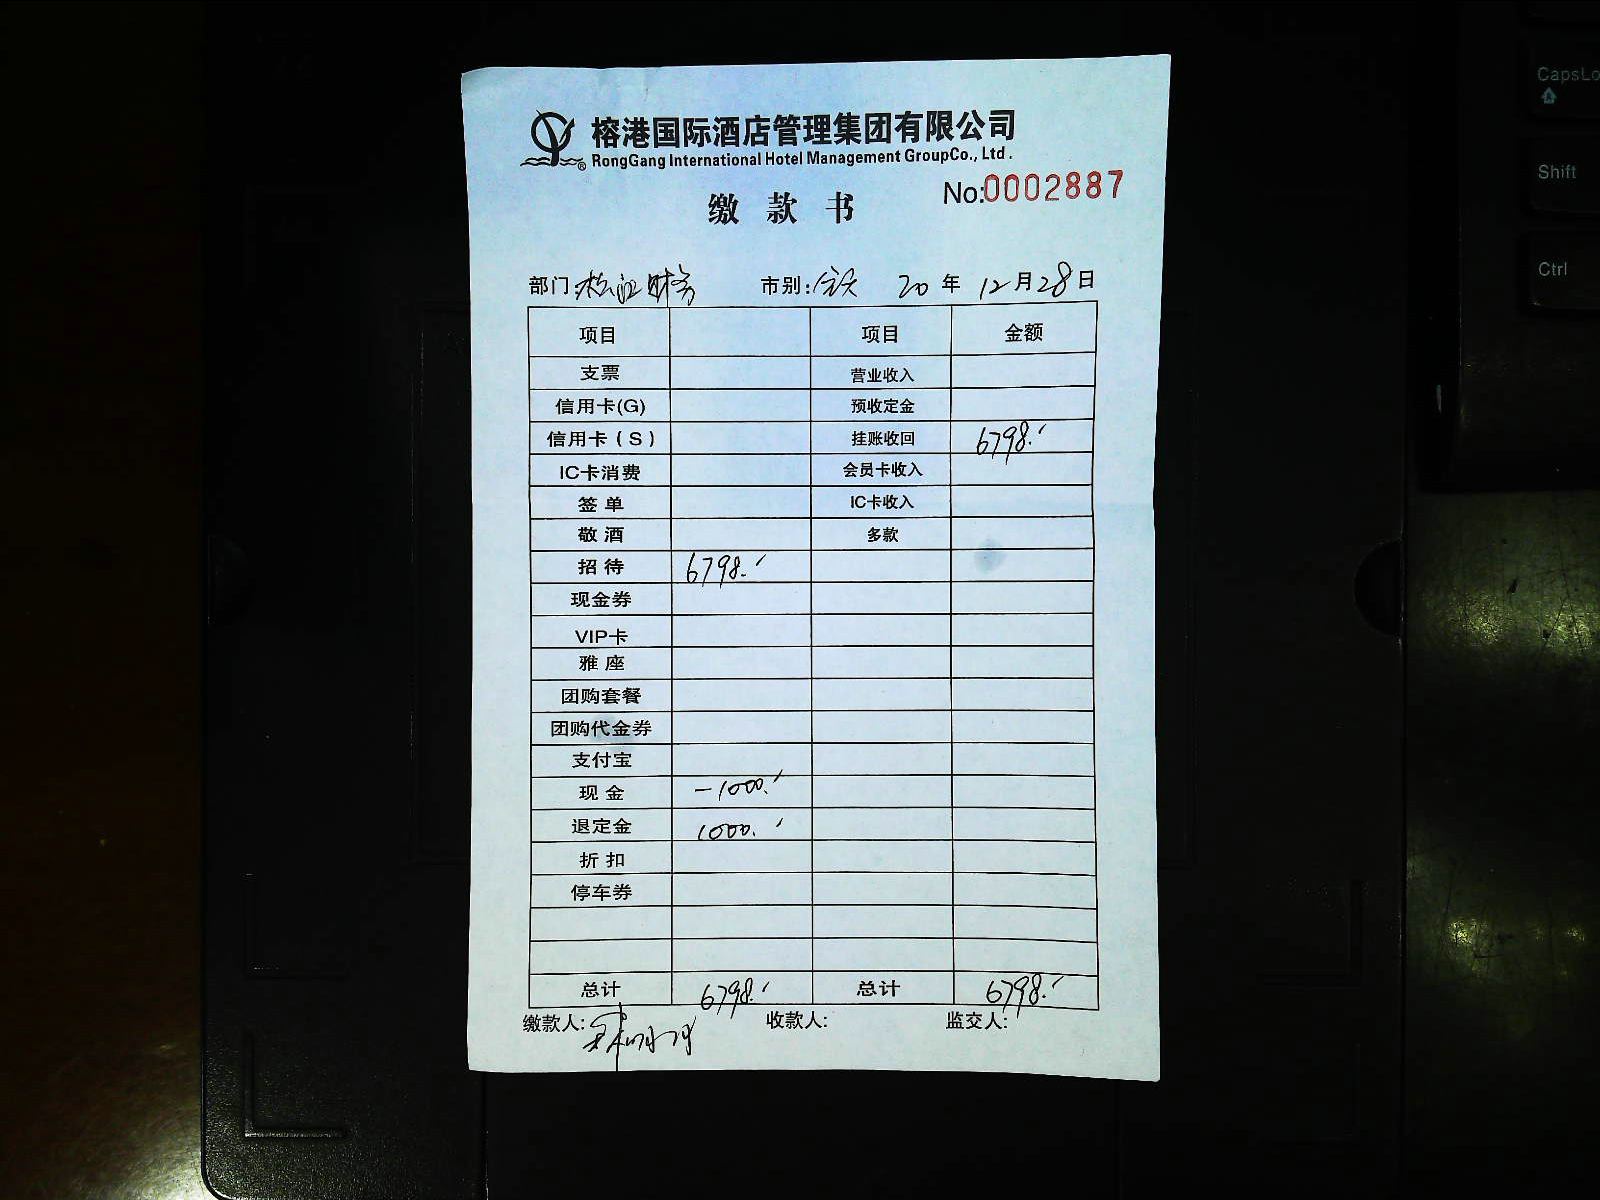 榕港国际酒店管理集团有限公司
®RongGang International Hotel Management GroupCo., Ltd.
缴 款 书
No:0002887
部门: 松江财务 市别: 全天 20 年 12 月 28 日
项目 项目 金额
支票 营业收入
信用卡(G) 预收定金
信用卡(S) 挂账收回 6798.
IC卡消费 会员卡收入
签 单 IC卡收入
敬 酒 多款
招 待 6798.
现金券
VIP卡
雅 座
团购套餐
团购代金券
支付宝
现 金 -1000.
退定金 1000.
折 扣
停车券
总计 6798. 总计 6798.
缴款人: 收款人: 监交人:
CapsLo
Shift
Ctrl